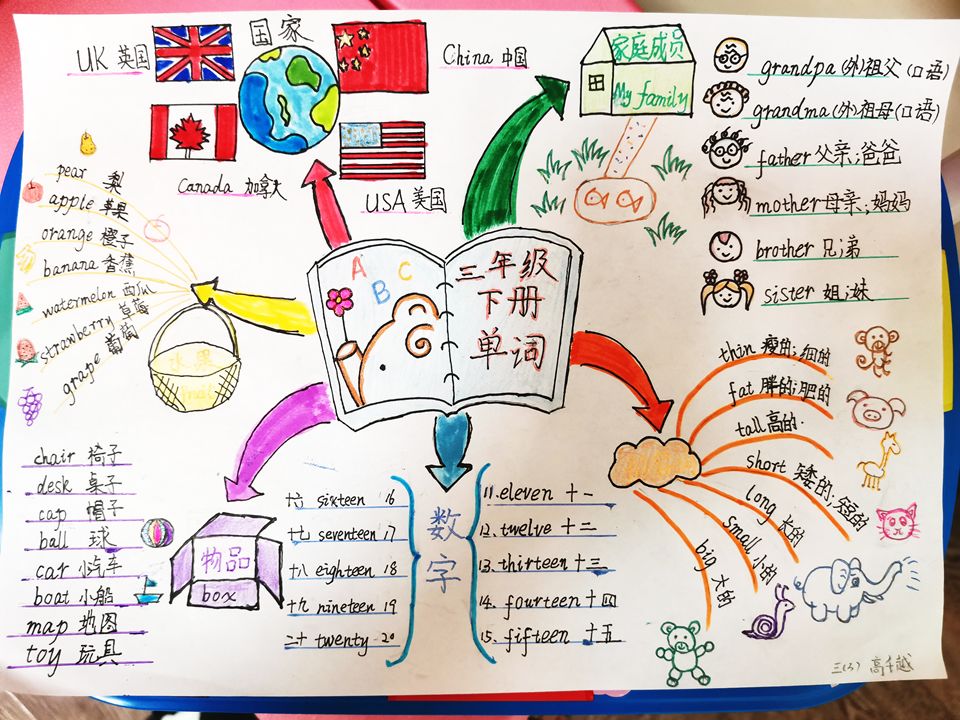 UK 英国
国家
China 中国
Canada 加拿大
USA 美国
家庭成员
My family
grandpa (外)祖父 (口语)
grandma (外)祖母(口语)
father 父亲;爸爸
mother 母亲;妈妈
brother 兄弟
sister 姐;妹
pear 梨
apple 苹果
orange 橙子
banana 香蕉
watermelon 西瓜
strawberry 草莓
grape 葡萄
水果
A B C
三年级
下册
单词
thin 瘦的;细的
fat 胖的;肥的
tall 高的.
short 矮的;短的
long 长的
small 小的
big 大的
chair 椅子
desk 桌子
cap 帽子
ball 球
car 小汽车
boat 小船
map 地图
toy 玩具
物品
box
十六 sixteen 16
十七 seventeen 17
十八 eighteen 18
十九 nineteen 19
二十 twenty 20
数字
11.eleven 十一
12.twelve 十二
13.thirteen 十三
14.fourteen 十四
15.fifteen 十五